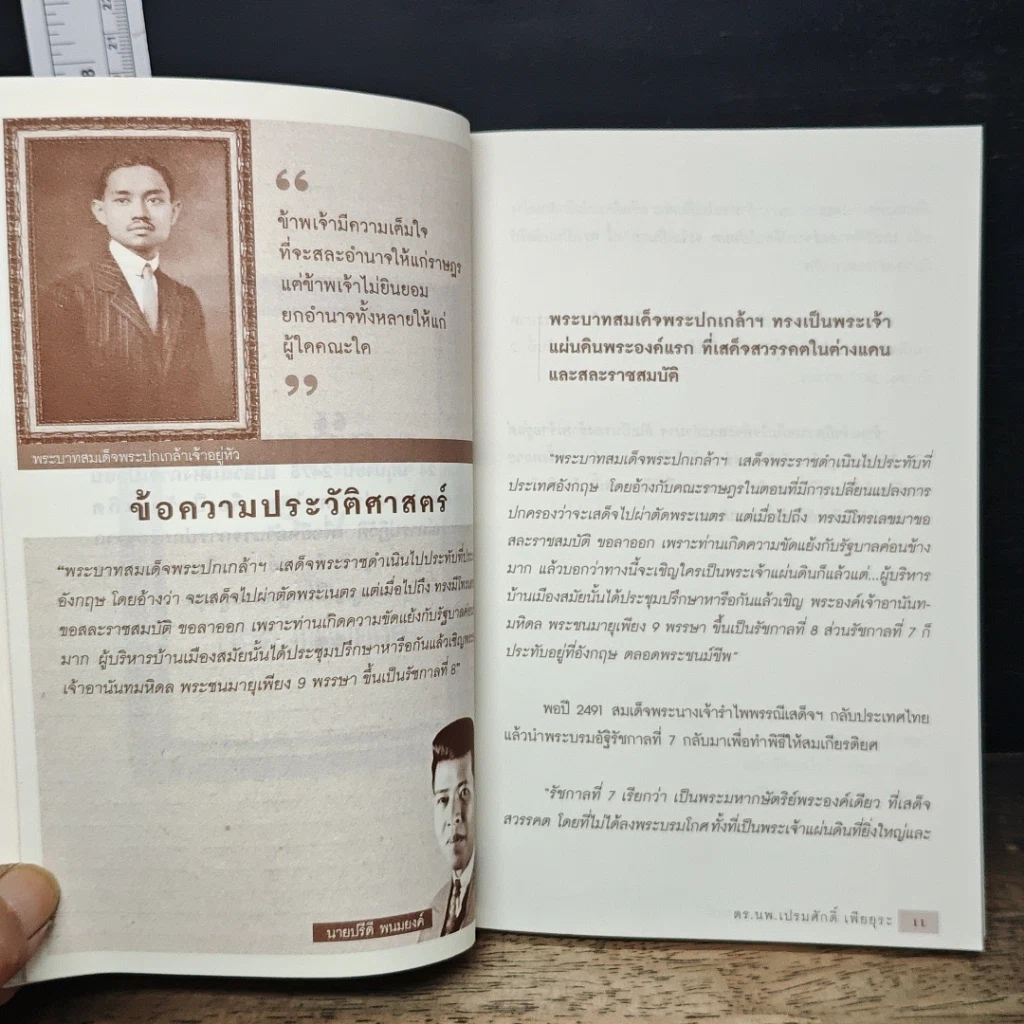 “
ข้าพเจ้ามีความเต็มใจ
ที่จะสละอำนาจให้แก่ราษฎร
แต่ข้าพเจ้าไม่ยินยอม
ยกอำนาจทั้งหลายให้แก่
ผู้ใดคณะใด
”
พระบาทสมเด็จพระปกเกล้าเจ้าอยู่หัว
ข้อความประวัติศาสตร์
“พระบาทสมเด็จพระปกเกล้าฯ เสด็จพระราชดำเนินไปประทับที่
อังกฤษ โดยอ้างว่า จะเสด็จไปผ่าตัดพระเนตร แต่เมื่อไปถึง ทรงมี
ขอสละราชสมบัติ ขอลาออก เพราะท่านเกิดความขัดแย้งกับรัฐบาล
มาก ผู้บริหารบ้านเมืองสมัยนั้นได้ประชุมปรึกษาหารือกันแล้วเชิญ
เจ้าอานันทมหิดล พระชนมายุเพียง 9 พรรษา ขึ้นเป็นรัชกาลที่ 8”
นายปรีดี พนมยงค์
พระบาทสมเด็จพระปกเกล้าฯ ทรงเป็นพระเจ้า
แผ่นดินพระองค์แรก ที่เสด็จสวรรคตในต่างแดน
และสละราชสมบัติ
“พระบาทสมเด็จพระปกเกล้าฯ เสด็จพระราชดำเนินไปประทับที่
ประเทศอังกฤษ โดยอ้างกับคณะราษฎรในตอนที่มีการเปลี่ยนแปลงการ
ปกครองว่าจะเสด็จไปผ่าตัดพระเนตร แต่เมื่อไปถึง ทรงมีโทรเลขมาขอ
สละราชสมบัติ ขอลาออก เพราะท่านเกิดความขัดแย้งกับรัฐบาลค่อนข้าง
มาก แล้วบอกว่าทางนี้จะเชิญใครเป็นพระเจ้าแผ่นดินก็แล้วแต่...ผู้บริหาร
บ้านเมืองสมัยนั้นได้ประชุมปรึกษาหารือกันแล้วเชิญ พระองค์เจ้าอานันท-
มหิดล พระชนมายุเพียง 9 พรรษา ขึ้นเป็นรัชกาลที่ 8 ส่วนรัชกาลที่ 7 ก็
ประทับอยู่ที่อังกฤษ ตลอดพระชนม์ชีพ”
พอปี 2491 สมเด็จพระนางเจ้ารำไพพรรณีเสด็จฯ กลับประเทศไทย
แล้วนำพระบรมอัฐิรัชกาลที่ 7 กลับมาเพื่อทำพิธีให้สมเกียรติยศ
“รัชกาลที่ 7 เรียกว่า เป็นพระมหากษัตริย์พระองค์เดียว ที่เสด็จ
สวรรคต โดยที่ไม่ได้ลงพระบรมโกศ ทั้งที่เป็นพระเจ้าแผ่นดินที่ยิ่งใหญ่และ
ดร.นพ.เปรมศักดิ์ เพียยุระ 11